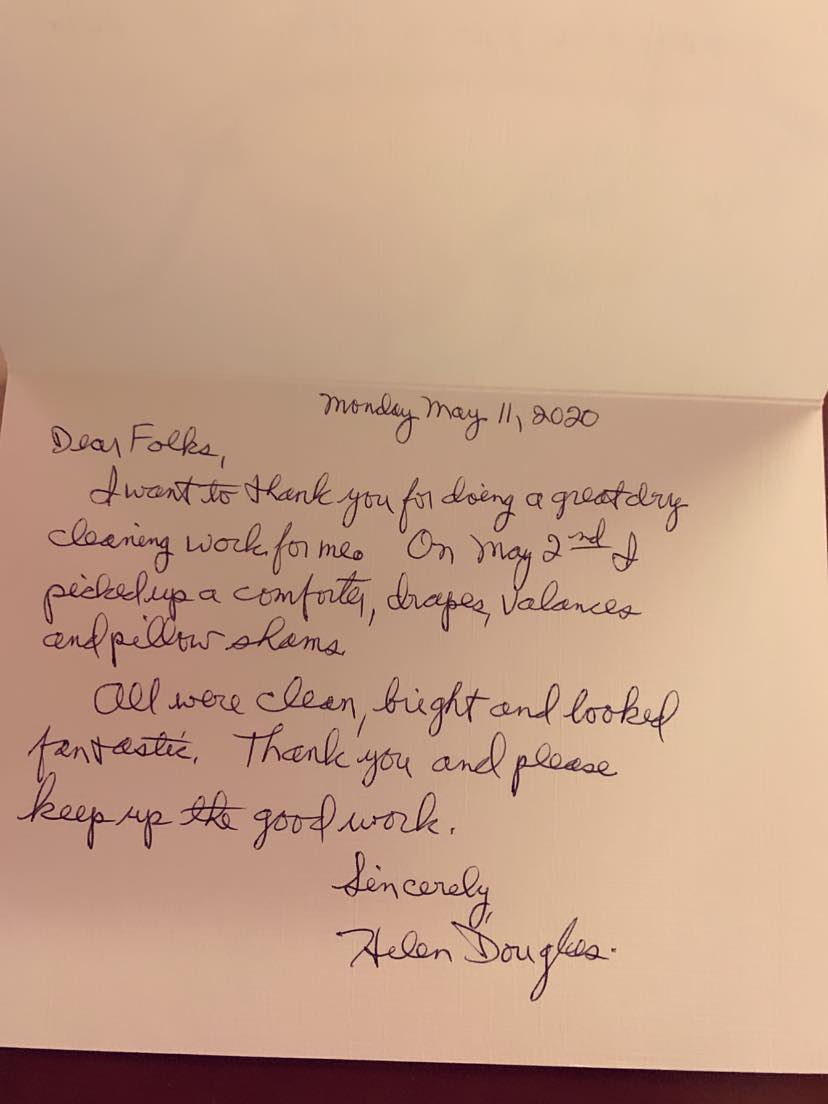 Monday May 11, 2020
Dear Folks,
I want to thank you for doing a great dry
cleaning work for me. On May 2nd I
picked up a comforter, drapes, valances
and pillow shams.
All were clean, bright and looked
fantastic. Thank you and please
keep up the good work.
Sincerely,
Helen Douglas.